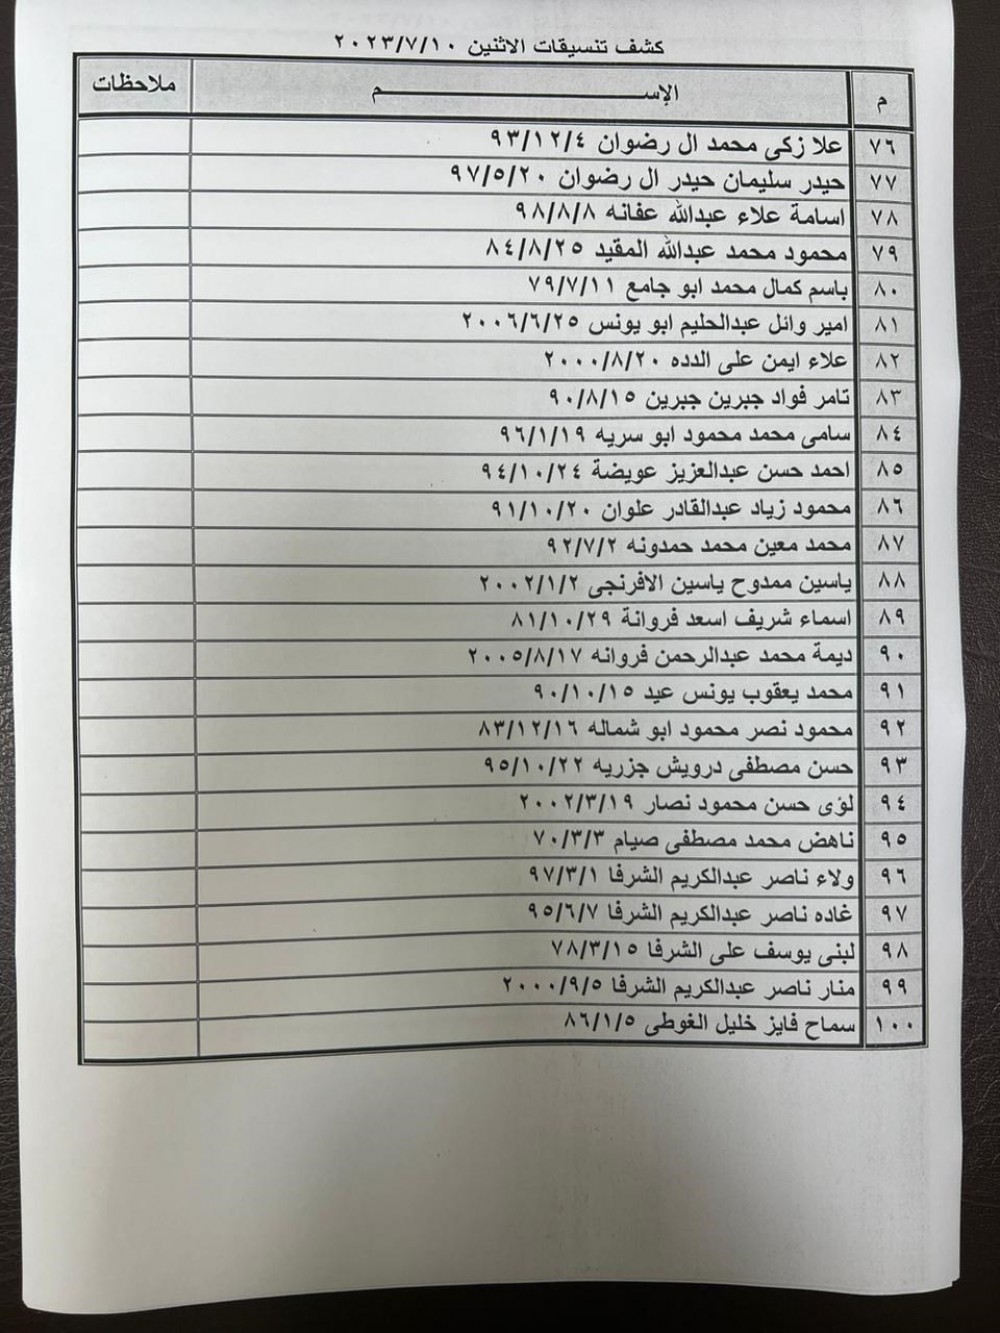 كشف تنسيقات الاثنين ٢٠٢٣/٧/١٠
م الإســـــــــــــم ملاحظات
٧٦ علا زكى محمد ال رضوان ٩٣/١٢/٤
٧٧ حيدر سليمان حيدر ال رضوان ٩٧/٥/٢٠
٧٨ اسامة علاء عبدالله عفانه ٩٨/٨/٨
٧٩ محمود محمد عبدالله المقيد ٨٤/٨/٢٥
٨٠ باسم كمال محمد ابو جامع ٧٩/٧/١١
٨١ امير وائل عبدالحليم ابو يونس ٢٠٠٦/٦/٢٥
٨٢ علاء ايمن على الدده ٢٠٠٠/٨/٢٠
٨٣ تامر فواد جبرين جبرين ٩٠/٨/١٥
٨٤ سامى محمد محمود ابو سريه ٩٦/١/١٩
٨٥ احمد حسن عبدالعزيز عويضة ٩٤/١٠/٢٤
٨٦ محمود زياد عبدالقادر علوان ٩١/١٠/٢٠
٨٧ محمد معين محمد حمدونه ٩٢/٧/٢
٨٨ ياسين ممدوح ياسين الافرنجى ٢٠٠٢/١/٢
٨٩ اسماء شريف اسعد فروانة ٨١/١٠/٢٩
٩٠ ديمة محمد عبدالرحمن فروانه ٢٠٠٥/٨/١٧
٩١ محمد يعقوب يونس عيد ٩٠/١٠/١٥
٩٢ محمود نصر محمود ابو شماله ٨٣/١٢/١٦
٩٣ حسن مصطفى درويش جزريه ٩٥/١٠/٢٢
٩٤ لؤى حسن محمود نصار ٢٠٠٢/٣/١٩
٩٥ ناهض محمد مصطفى صيام ٧٠/٣/٣
٩٦ ولاء ناصر عبدالكريم الشرفا ٩٧/٣/١
٩٧ غاده ناصر عبدالكريم الشرفا ٩٥/٦/٧
٩٨ لبنى يوسف على الشرفا ٧٨/٣/١٥
٩٩ منار ناصر عبدالكريم الشرفا ٢٠٠٠/٩/٥
١٠٠ سماح فايز خليل الغوطى ٨٦/١/٥